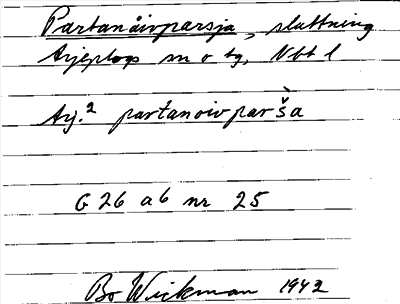 Partanåivparsja, sluttning
Arjeplogs sn o tg, Nbt l
Arj.² partanoivparš̀a
G 26 a b nr 25
Bo Wickman 1942